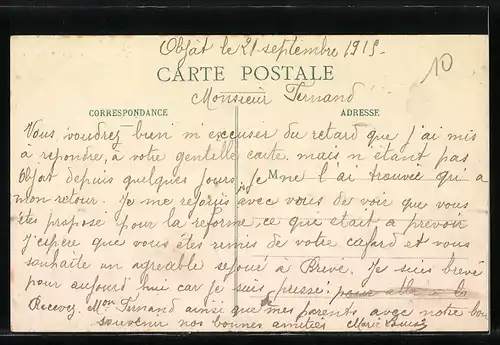 Objat le 21 septembre 1915-
10
CARTE POSTALE
Monsieur Fernand
CORRESPONDANCE
ADRESSE
Vous voudrez bien m'excuser du retard que j'ai mis
à repondre, à votre gentille carte. mais n'étant pas
Objat depuis quelques jours, je ne l'ai trouvée qu'a
M
mon retour. Je me rejouis avec vous de voir que vous
êtes proposé pour la reforme, ce que etait a prevoir
J'espère que vous êtes remis de votre cafard et vous
souhaite un agreable sejour à Brive. Je suis brève
pour aujourd hui car je suis pressé.
Recevez, Mon Fernand ainsi que mes parents avec notre bon
souvenir nos bonnes amitiés Marie Louise